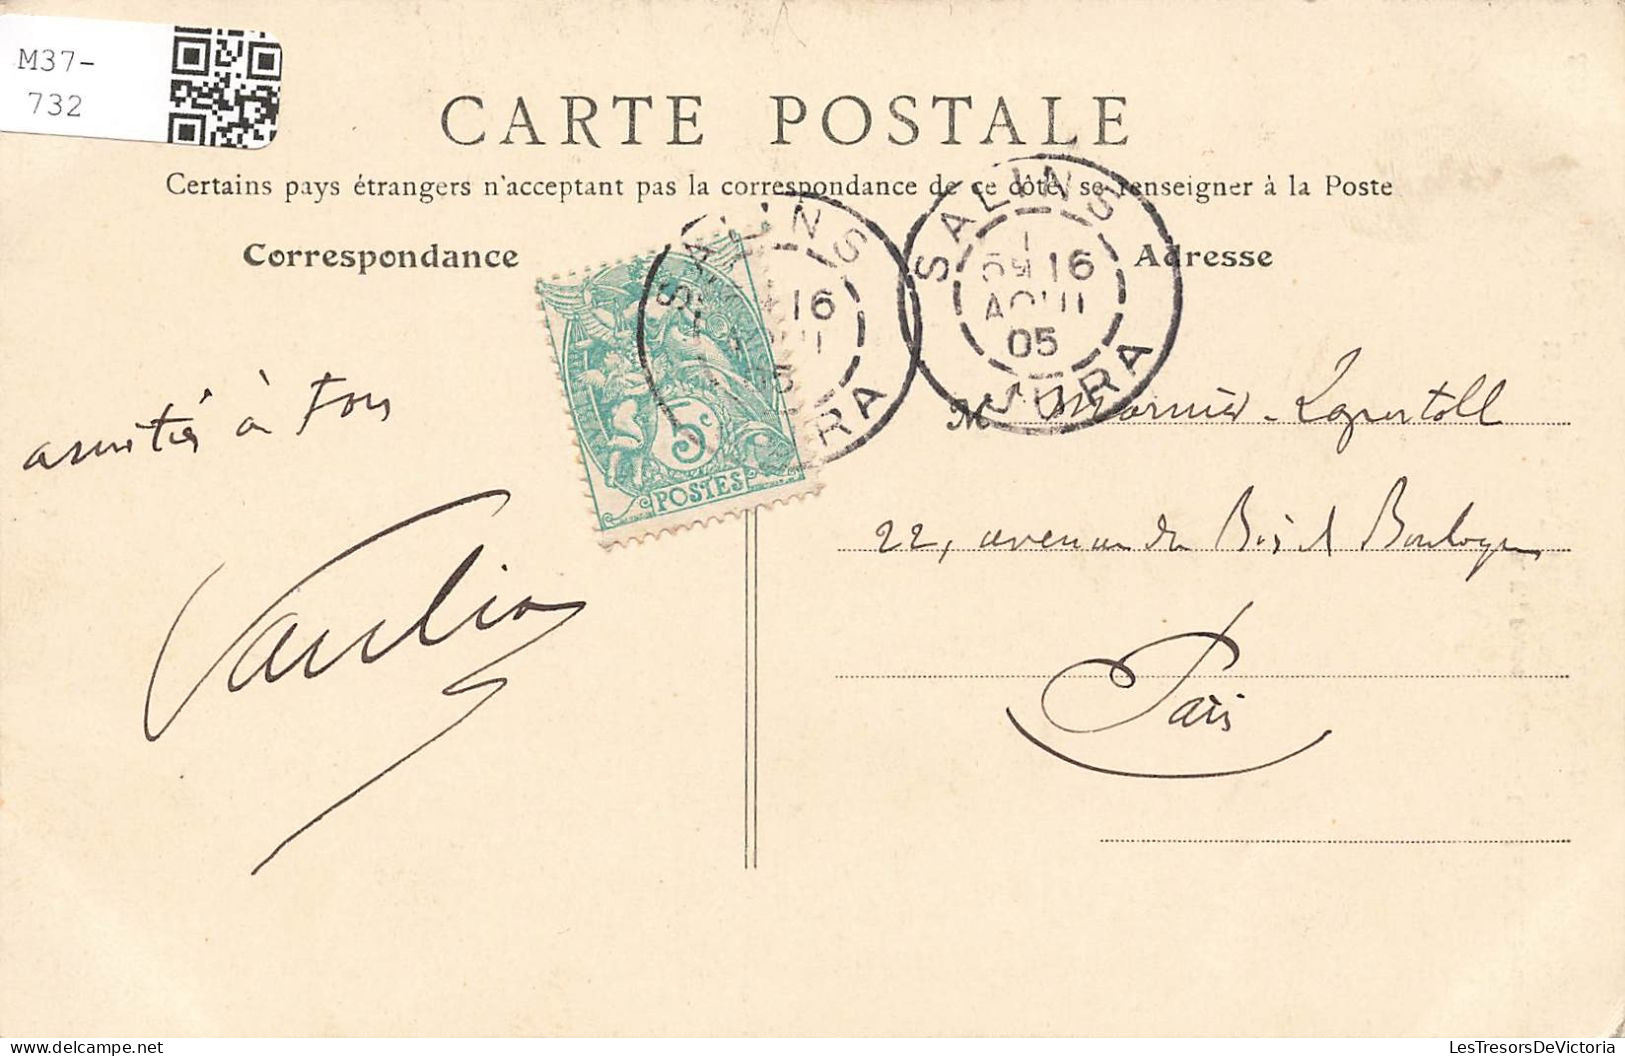 M37-
732
CARTE POSTALE
Certains pays étrangers n'acceptant pas la correspondance de ce côté, se renseigner à la Poste
Correspondance
Adresse
SALINS
16
JURA
SALINS
16
AOUT
05
JURA
5c
POSTES
amitiés à tous
M
22, avenue du Bois d Boulogne
Paris
LesTresorsDeVictoria.com